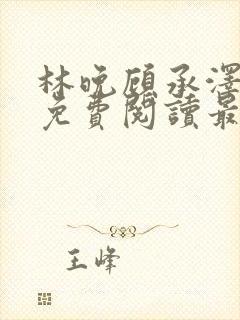 林晚顾承澤
免費閱讀最
王峰